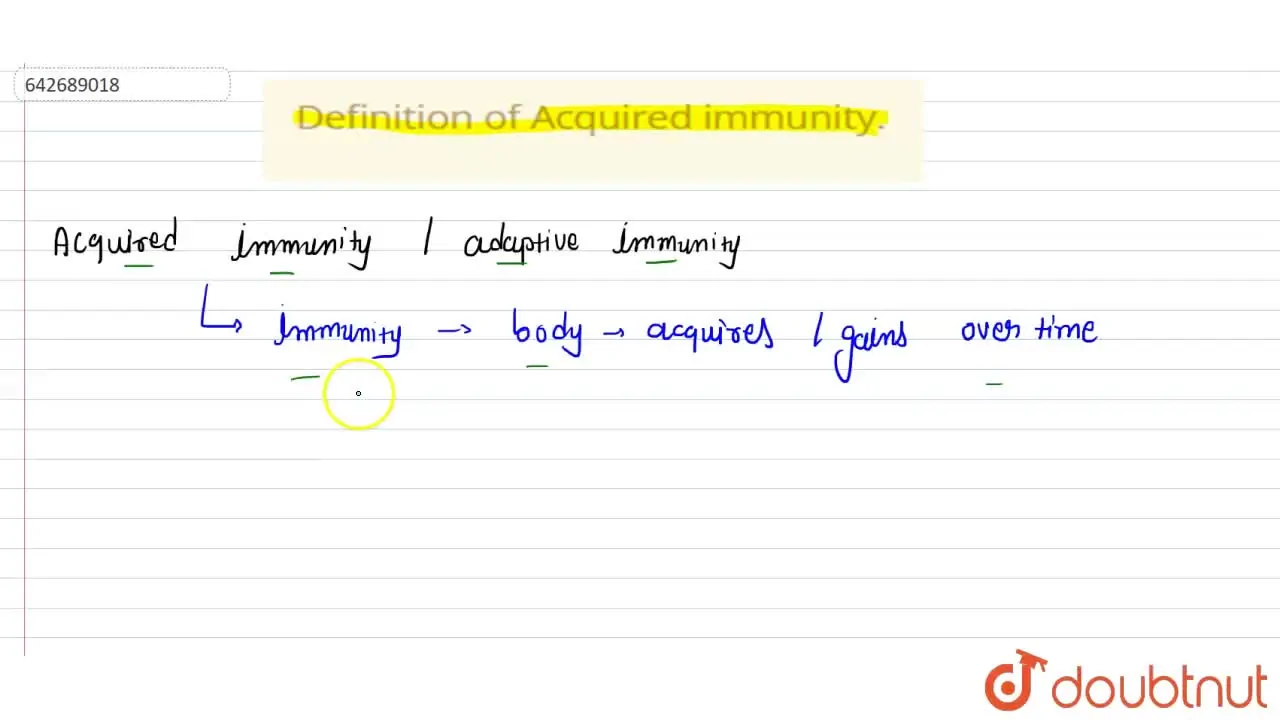 642689018
Definition of Acquired immunity.
Acquired immunity / adaptive immunity
immunity → body → acquires / gains over time
doubtnut